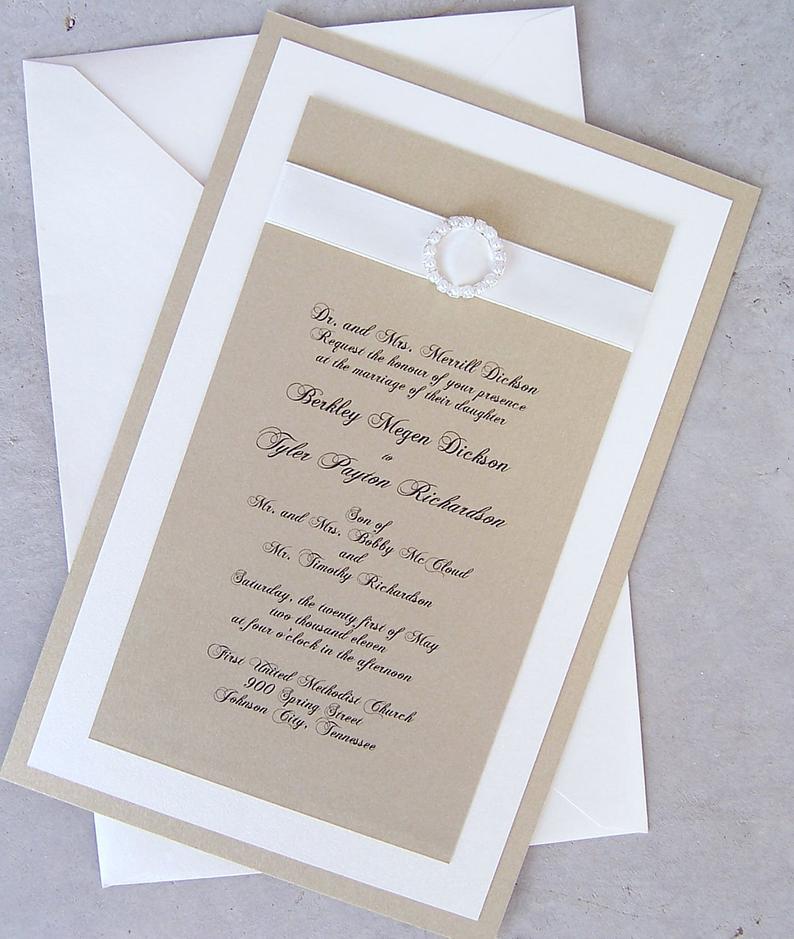 Dr. and Mrs. Merrill Dickson
Request the honour of your presence
at the marriage of their daughter
Berkley Megen Dickson
to
Tyler Payton Richardson
Son of
Mr. and Mrs. Bobby McCloud
and
Mr. Timothy Richardson
Saturday, the twenty first of May
two thousand eleven
at four o'clock in the afternoon
First United Methodist Church
900 Spring Street
Johnson City, Tennessee